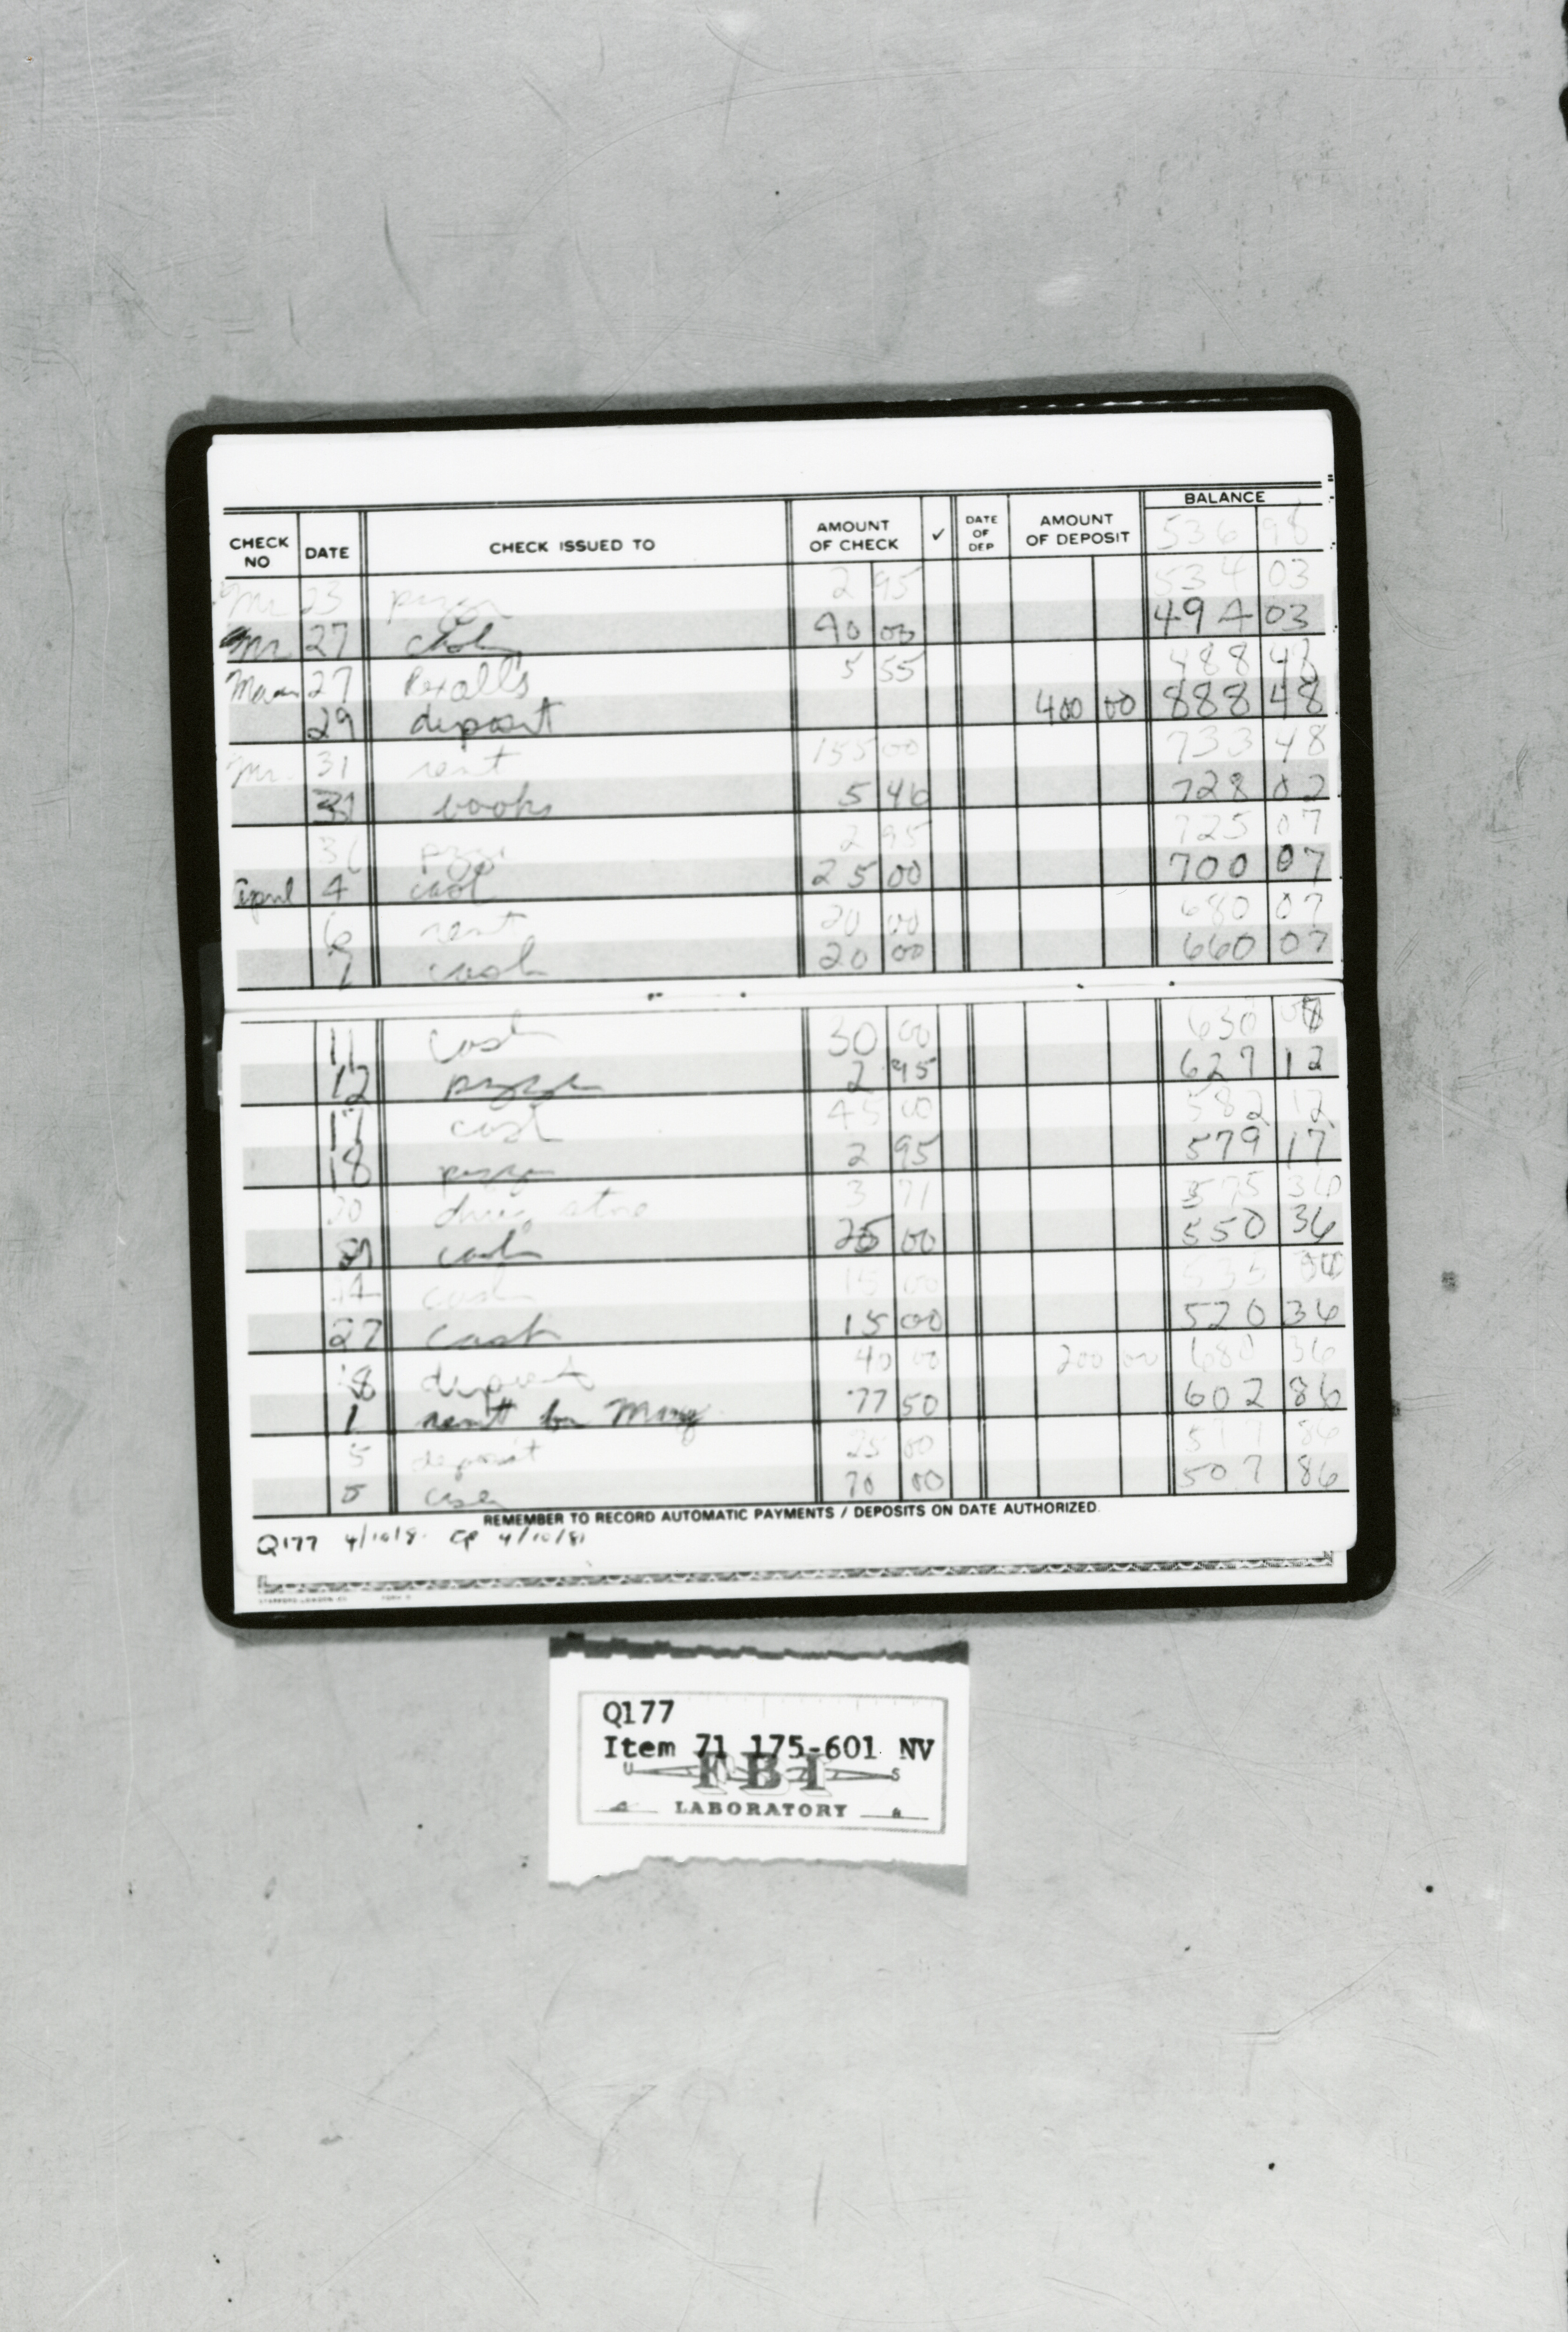 BALANCE
CHECK NO DATE CHECK ISSUED TO AMOUNT OF CHECK ✓ DATE OF DEP AMOUNT OF DEPOSIT 536 98
Mr 25 pizza 2 95 534 03
Mr 27 cash 40 00 494 03
27 Rexall's 5 55 488 48
29 deposit 400 00 888 48
Mr. 31 rent 155 00 733 48
31 books 5 46 728 02
31 2 95 725 07
April 4 cash 25 00 700 07
6 rent 20 00 680 07
7 cash 20 00 660 07
11 cash 30 00 630
12 pizza 2 95 627 12
17 cash 45 00 582 12
18 pizza 2 95 579 17
20 drug store 3 71 575 36
cash 25 00 550 36
cash 15 00 535
27 cash 15 00 520 36
deposit 40 00 200 00 680 36
1 rent for 77 50 602 86
5 deposit 25 00 577 86
5 cash 70 00 507 86
REMEMBER TO RECORD AUTOMATIC PAYMENTS / DEPOSITS ON DATE AUTHORIZED.
Q177 4/10/8 cp 4/10/81
Q177
Item 71 175-601 NV
U FBI S
LABORATORY